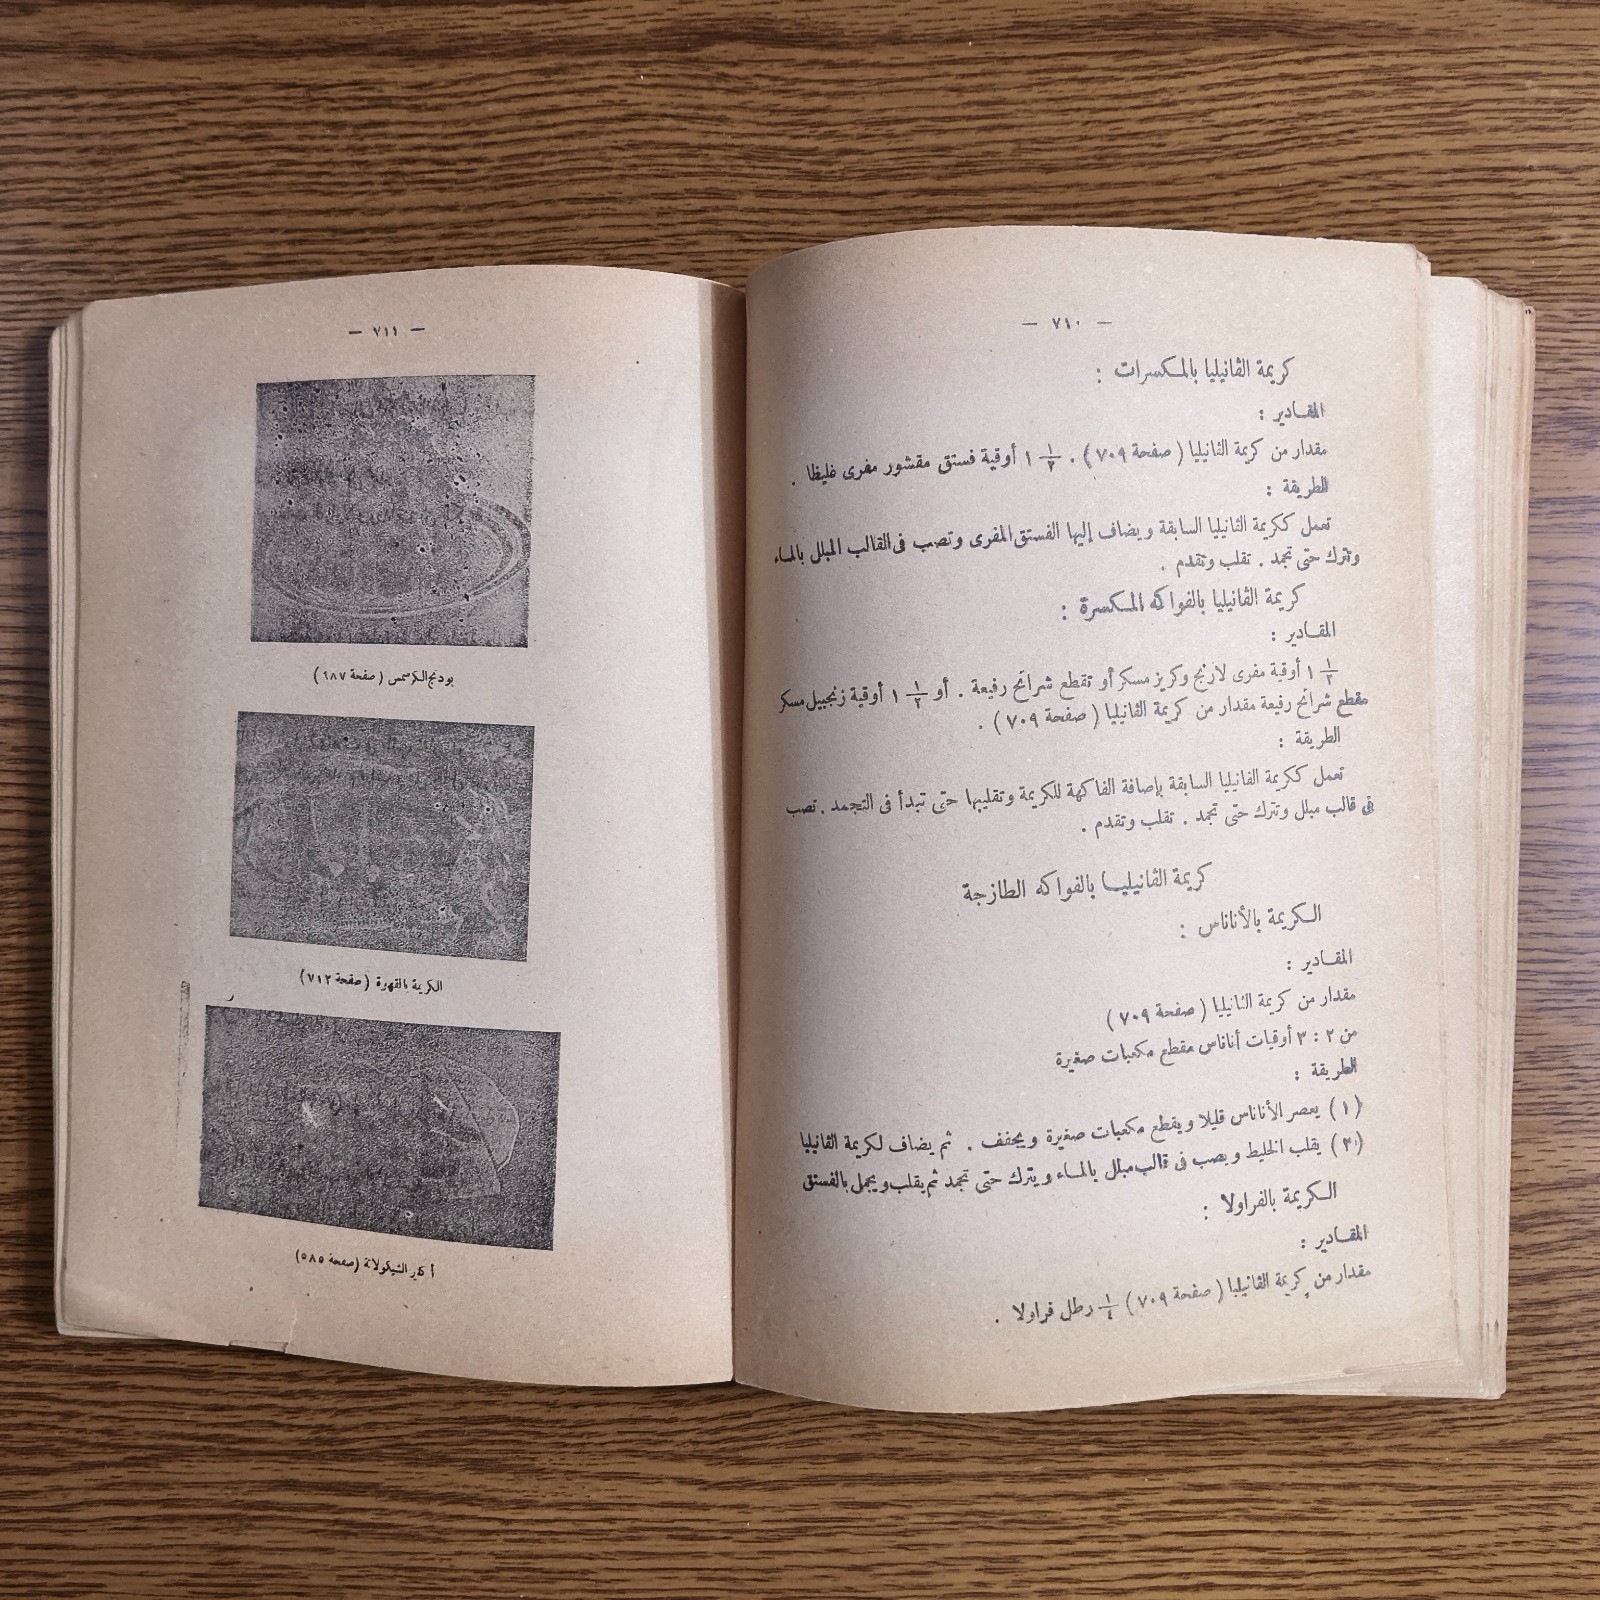 — ٧١٠ —
كريمة الڤانيليا بالمكسرات :
المقادير :
مقدار من كريمة الڤانيليا ( صفحة ٧٠٩ ) . ١ ١/٢ أوقية فستق مقشور مفرى غليظا .
الطريقة :
تعمل ككريمة الڤانيليا السابقة ويضاف إليها الفستق المفرى وتصب فى القالب المبلل بالماء
وتترك حتى تجمد . تقلب وتقدم .
كريمة الڤانيليا بالفواكه المسكرة :
المقادير :
١ ١/٢ أوقية مفرى لارنج وكريز مسكر أو تقطع شرائح رفيعة . أو ١ ١/٢ أوقية زنجبيل مسكر
مقطع شرائح رفيعة مقدار من كريمة الڤانيليا ( صفحة ٧٠٩ ) .
الطريقة :
تعمل ككريمة الڤانيليا السابقة بإضافة الفاكهة للكريمة وتقليبها حتى تبدأ فى التجمد . تصب
فى قالب مبلل وتترك حتى تجمد . تقلب وتقدم .
كريمة الڤانيليا بالفواكه الطازجة
الكريمة بالأناناس :
المقادير :
مقدار من كريمة الڤانيليا ( صفحة ٧٠٩ )
من ٢ : ٣ أوقيات أناناس مقطع مكعبات صغيرة
الطريقة :
( ١ ) يعصر الأناناس قليلا ويقطع مكعبات صغيرة ويجفف . ثم يضاف لكريمة الڤانيليا
( ٢ ) يقلب الخليط ويصب فى قالب مبلل بالماء ويترك حتى تجمد ثم يقلب ويجمل بالفستق
الكريمة بالفراولا :
المقادير :
مقدار من كريمة الڤانيليا ( صفحة ٧٠٩ ) ١/٤ رطل فراولا .
— ٧١١ —
بودنج الكرسمس ( صفحة ٦٨٧ )
الكريمة بالقهوة ( صفحة ٧١٢ )
أكلير الشيكولاتة ( صفحة ٥٨٥ )